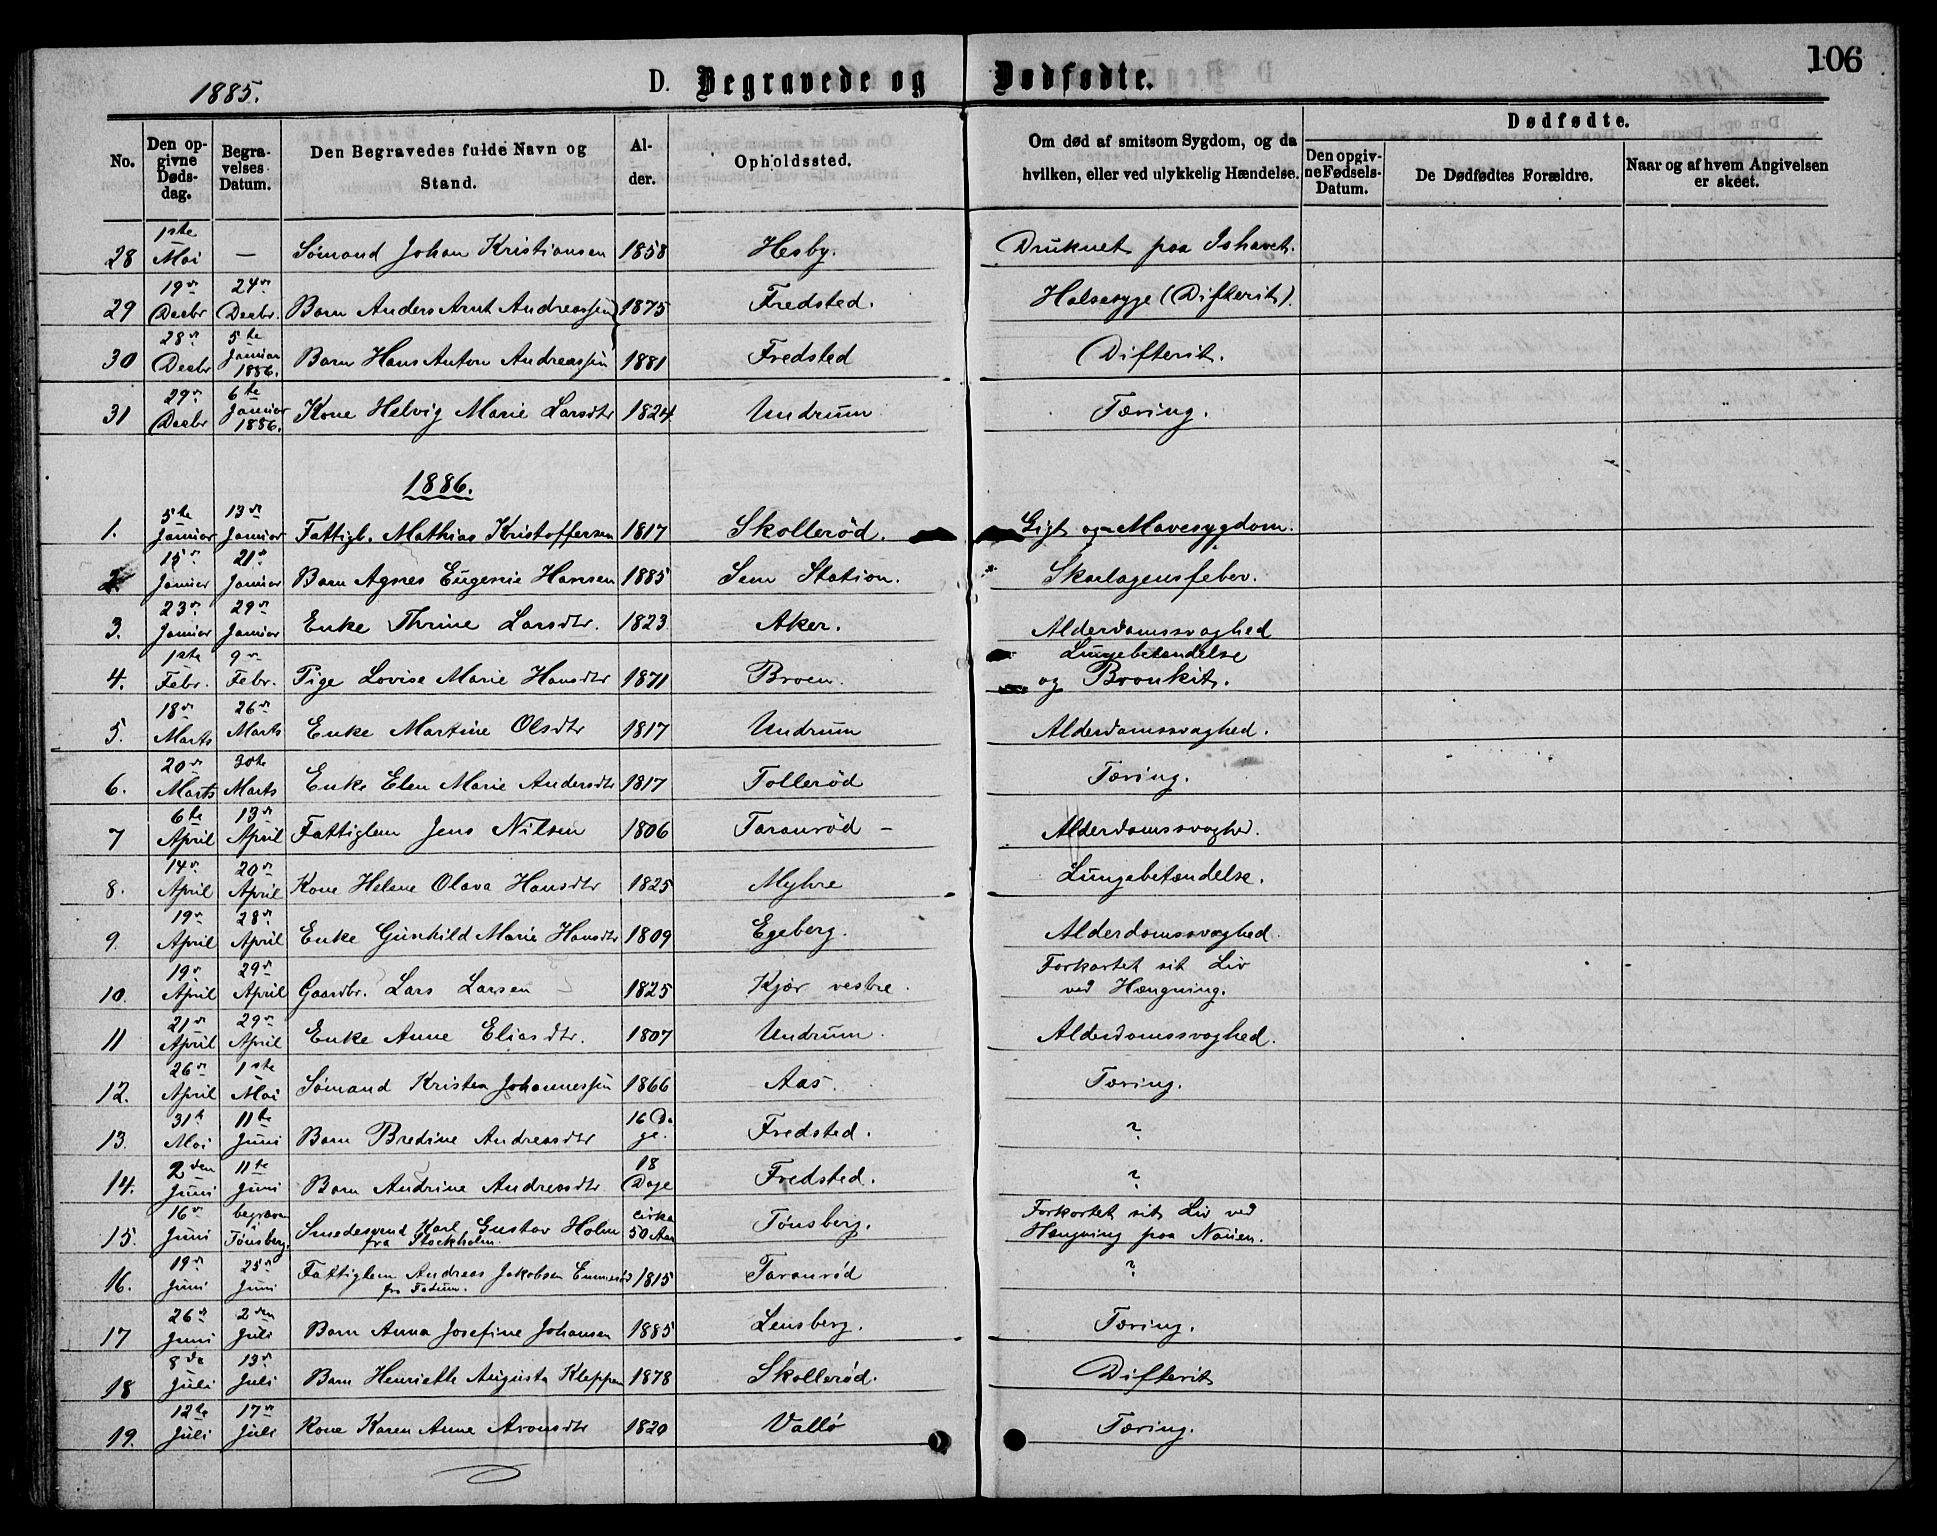 106
1885.
D. Begravede og Dødfødte.
No. | Den opgivne Dødsdag. | Begravelses Datum. | Den Begravedes fulde Navn og Stand. | Alder. | Opholdssted. | Om død af smitsom Sygdom, og da hvilken, eller ved ulykkelig Hændelse. | Dødfødte. | Den opgivne Fødsels-Datum. | De Dødfødtes Forældre. | Naar og af hvem Angivelsen er skeet.
28 | 1ste Mai | — | Sømand Johan Kristiansen | 1858 | Hesby. | Druknet paa Ishavet.
29 | 19de Decbr | 24de Decbr. | Barn Anders Arnt Andreassen | 1875 | Fredsted. | Halsesyge (Difterit).
30 | 28de Decbr | 5te Januar 1886. | Barn Hans Anton Andreassen | 1881 | Fredsted | Difterit.
31 | 29de Decbr | 6te Januar 1886. | Kone Helvig Marie Larsdtr | 1824 | Undrum | Tæring.
1886.
1. | 5te Januar | 13de Januar | Fattigl. Mathias Kristoffersen | 1817 | Skollerød. | Gigt og Mavesygdom.
2. | 15de Januar | 21de Januar | Barn Agnes Eugenie Hansen | 1885 | Sem Station. | Skarlagensfeber.
3. | 23de Januar | 29de Januar | Enke Thrine Larsdtr. | 1823 | Aker. | Alderdomssvaghed
4. | 1ste Febr. | 9de Febr. | Pige Lovise Marie Hansdtr | 1871 | Broen. | Lungebetændelse og Bronkit.
5. | 18de Marts | 26de Marts | Enke Martine Olsdtr | 1817 | Undrum | Alderdomssvaghed.
6. | 20de Marts | 30te Marts | Enke Elen Marie Andersdtr | 1817 | Tollerød | Tæring.
7 | 6te April | 13de April | Fattiglem Jens Nilsen | 1806 | Taranrød – | Alderdomssvaghed.
8. | 14de April | 20de April | Kone Helene Olava Hansdtr | 1825 | Myhre | Lungebetændelse.
9. | 19de April | 28de April | Enke Gunhild Marie Hansdtr | 1809 | Egeberg. | Alderdomssvaghed.
10. | 19de April | 29de April | Gaardbr. Lars Larsen | 1825 | Kjær vestre. | Forkortet sit Liv ved Hængning.
11 | 21de April | 29de April | Enke Anne Eliasdtr. | 1807 | Undrum. | Alderdomssvaghed.
12. | 26de April | 1ste Mai | Sømand Kristen Johannessen | 1866 | Aas. | Tæring.
13. | 31te Mai | 11te Juni | Barn Bredine Andreasdtr | 16 Dage. | Fredsted. | ?
14. | 2den Juni | 11te Juni | Barn Andrine Andreasdtr | 18 Dage | Fredsted. | ?
15. | 16de Juni | begraven i Tønsberg. | Smedesvend Karl Gustav Holm fra Stockholm. | cirka 50 Aar | Tønsberg. | Forkortet sit Liv ved Hængning paa Nauen.
16. | 19de Juni | 25de Juni | Fattiglem Andreas Jakobsen fra Fadum. | 1815 | Taranrød | ?
17 | 26de Juni | 2den Juli | Barn Anna Josefine Johansen | 1885 | Lensberg. | Tæring.
18 | 8de Juli | 13de Juli | Barn Henriette Augusta Kleppan | 1878 | Skollerød. | Difterit
19. | 12te Juli | 17de Juli | Kone Karen Anne Aronsdtr | 1820 | Vallø | Tæring.